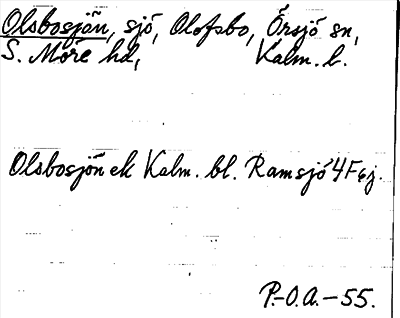 Olsbosjön, sjö, Olofsbo, Örsjö sn,
S. Möre hd, Kalm. l.
Olsbosjön ek Kalm. bl. Ramsjö 4F ej.
P.-O.A.-55.